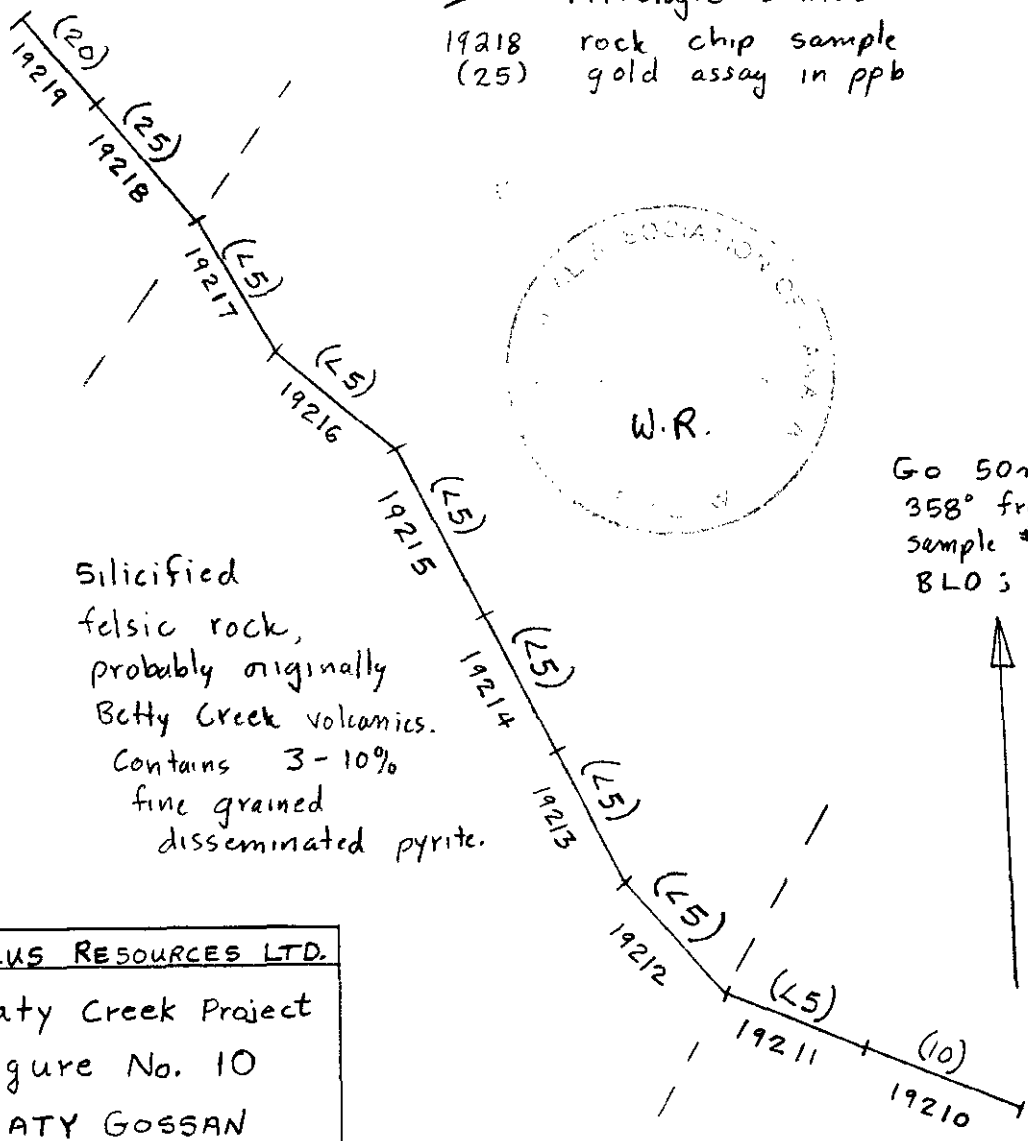 19218 rock chip sample
(25) gold assay in ppb
(20)
19219
(25)
19218
(<5)
19217
(<5)
19216
(<5)
19215
(<5)
19214
(<5)
19213
(<5)
19212
(<5)
19211
(10)
19210
W.R.
Go 50
358°
sample
BLO ;
Silicified
felsic rock,
probably originally
Betty Creek volcanics.
Contains 3-10%
fine grained
disseminated pyrite.
RESOURCES LTD.
Creek Project
No. 10
GOSSAN